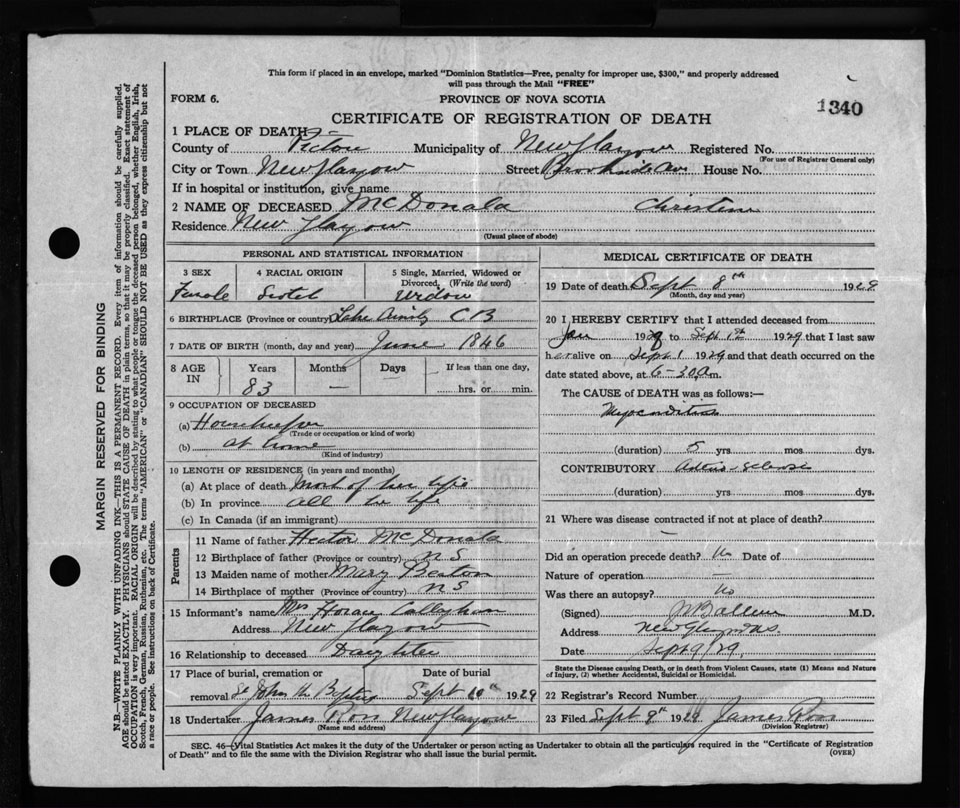 This form if placed in an envelope, marked "Dominion Statistics—Free, penalty for improper use, $300," and properly addressed
will pass through the Mail "FREE"
FORM 6.
PROVINCE OF NOVA SCOTIA
1340
CERTIFICATE OF REGISTRATION OF DEATH
1 PLACE OF DEATH
County of Pictou Municipality of New Glasgow Registered No.
(For use of Registrar General only)
City or Town New Glasgow Street Brookside Ave House No.
If in hospital or institution, give name
2 NAME OF DECEASED McDonald Christine
Residence New Glasgow
(Usual place of abode)
PERSONAL AND STATISTICAL INFORMATION
3 SEX 4 RACIAL ORIGIN 5 Single, Married, Widowed or Divorced. (Write the word)
Female Scotch Widow
6 BIRTHPLACE (Province or country) Lake Ainslie C B
7 DATE OF BIRTH (month, day and year) June 1846
8 AGE IN Years Months Days If less than one day,
83 — — hrs. or min.
9 OCCUPATION OF DECEASED
(a) Housekeeper
(Trade or occupation or kind of work)
(b) at home
(Kind of industry)
10 LENGTH OF RESIDENCE (in years and months)
(a) At place of death Most of her life
(b) In province all her life
(c) In Canada (if an immigrant)
Parents
11 Name of father Hector McDonald
12 Birthplace of father (Province or country) N S
13 Maiden name of mother Mary Beaton
14 Birthplace of mother (Province or country) N S
15 Informant's name Mrs Horace
Address New Glasgow
16 Relationship to deceased Daughter
17 Place of burial, cremation or removal Date of burial
St John the Baptist Sept 10th 1929
18 Undertaker James Ross New Glasgow
(Name and address)
MEDICAL CERTIFICATE OF DEATH
19 Date of death Sept 8th 1929
(Month, day and year)
20 I HEREBY CERTIFY that I attended deceased from
Jan 192 to Sept 1929 that I last saw
her alive on Sept 1 1929 and that death occurred on the
date stated above, at 6-30 a.m.
The CAUSE OF DEATH was as follows:—
Myocarditis
(duration) 5 yrs mos dys.
CONTRIBUTORY Arterio-sclerosis
(duration) yrs mos dys.
21 Where was disease contracted if not at place of death?
—
Did an operation precede death? No Date of
Nature of operation —
Was there an autopsy? No
(Signed) M.D.
Address New Glasgow N.S.
Date Sept 9/29.
State the Disease causing Death, or in death from Violent Causes, state (1) Means and Nature
of Injury, (2) whether Accidental, Suicidal or Homicidal.
22 Registrar's Record Number
23 Filed Sept 9th 1929 James Ross
(Division Registrar)
SEC. 46—Vital Statistics Act makes it the duty of the Undertaker or person acting as Undertaker to obtain all the particulars required in the "Certificate of Registration
of Death" and to file the same with the Division Registrar who shall issue the burial permit.
(OVER)
MARGIN RESERVED FOR BINDING
N.B.—WRITE PLAINLY WITH UNFADING INK—THIS IS A PERMANENT RECORD. Every item of information should be carefully supplied.
AGE should be stated EXACTLY. PHYSICIANS should STATE CAUSE OF DEATH in plain terms, so that it may be properly classified. Exact statement of
OCCUPATION is very important. RACIAL ORIGIN will be described by stating to what people or tongue the deceased person belonged, whether English, Irish,
Scotch, French, German, Russian, Ruthenian, etc. The terms "AMERICAN" or "CANADIAN" SHOULD NOT BE USED as they express citizenship but not
a race or people. See instructions on back of Certificate.